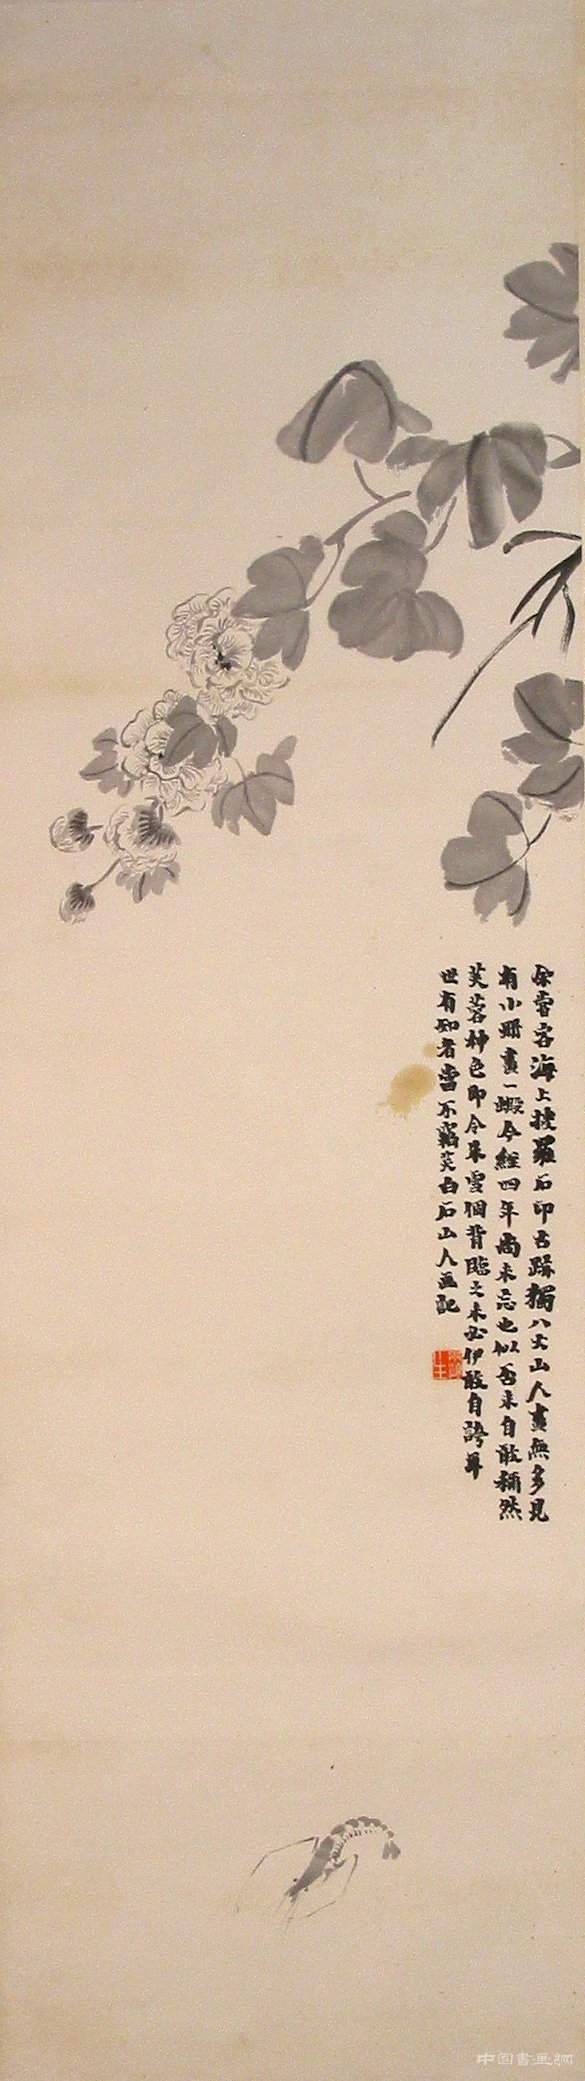 余嘗客海上搜羅石印古跡獨八大山人畫無多見
有小冊畫一蝦今經四年尚未忘也似吾未自敢稱然
芙蓉神色即令朱雪個背臨之未必伊敢自誇耳
世有知者當不竊笑白石山人並記
中国書画網